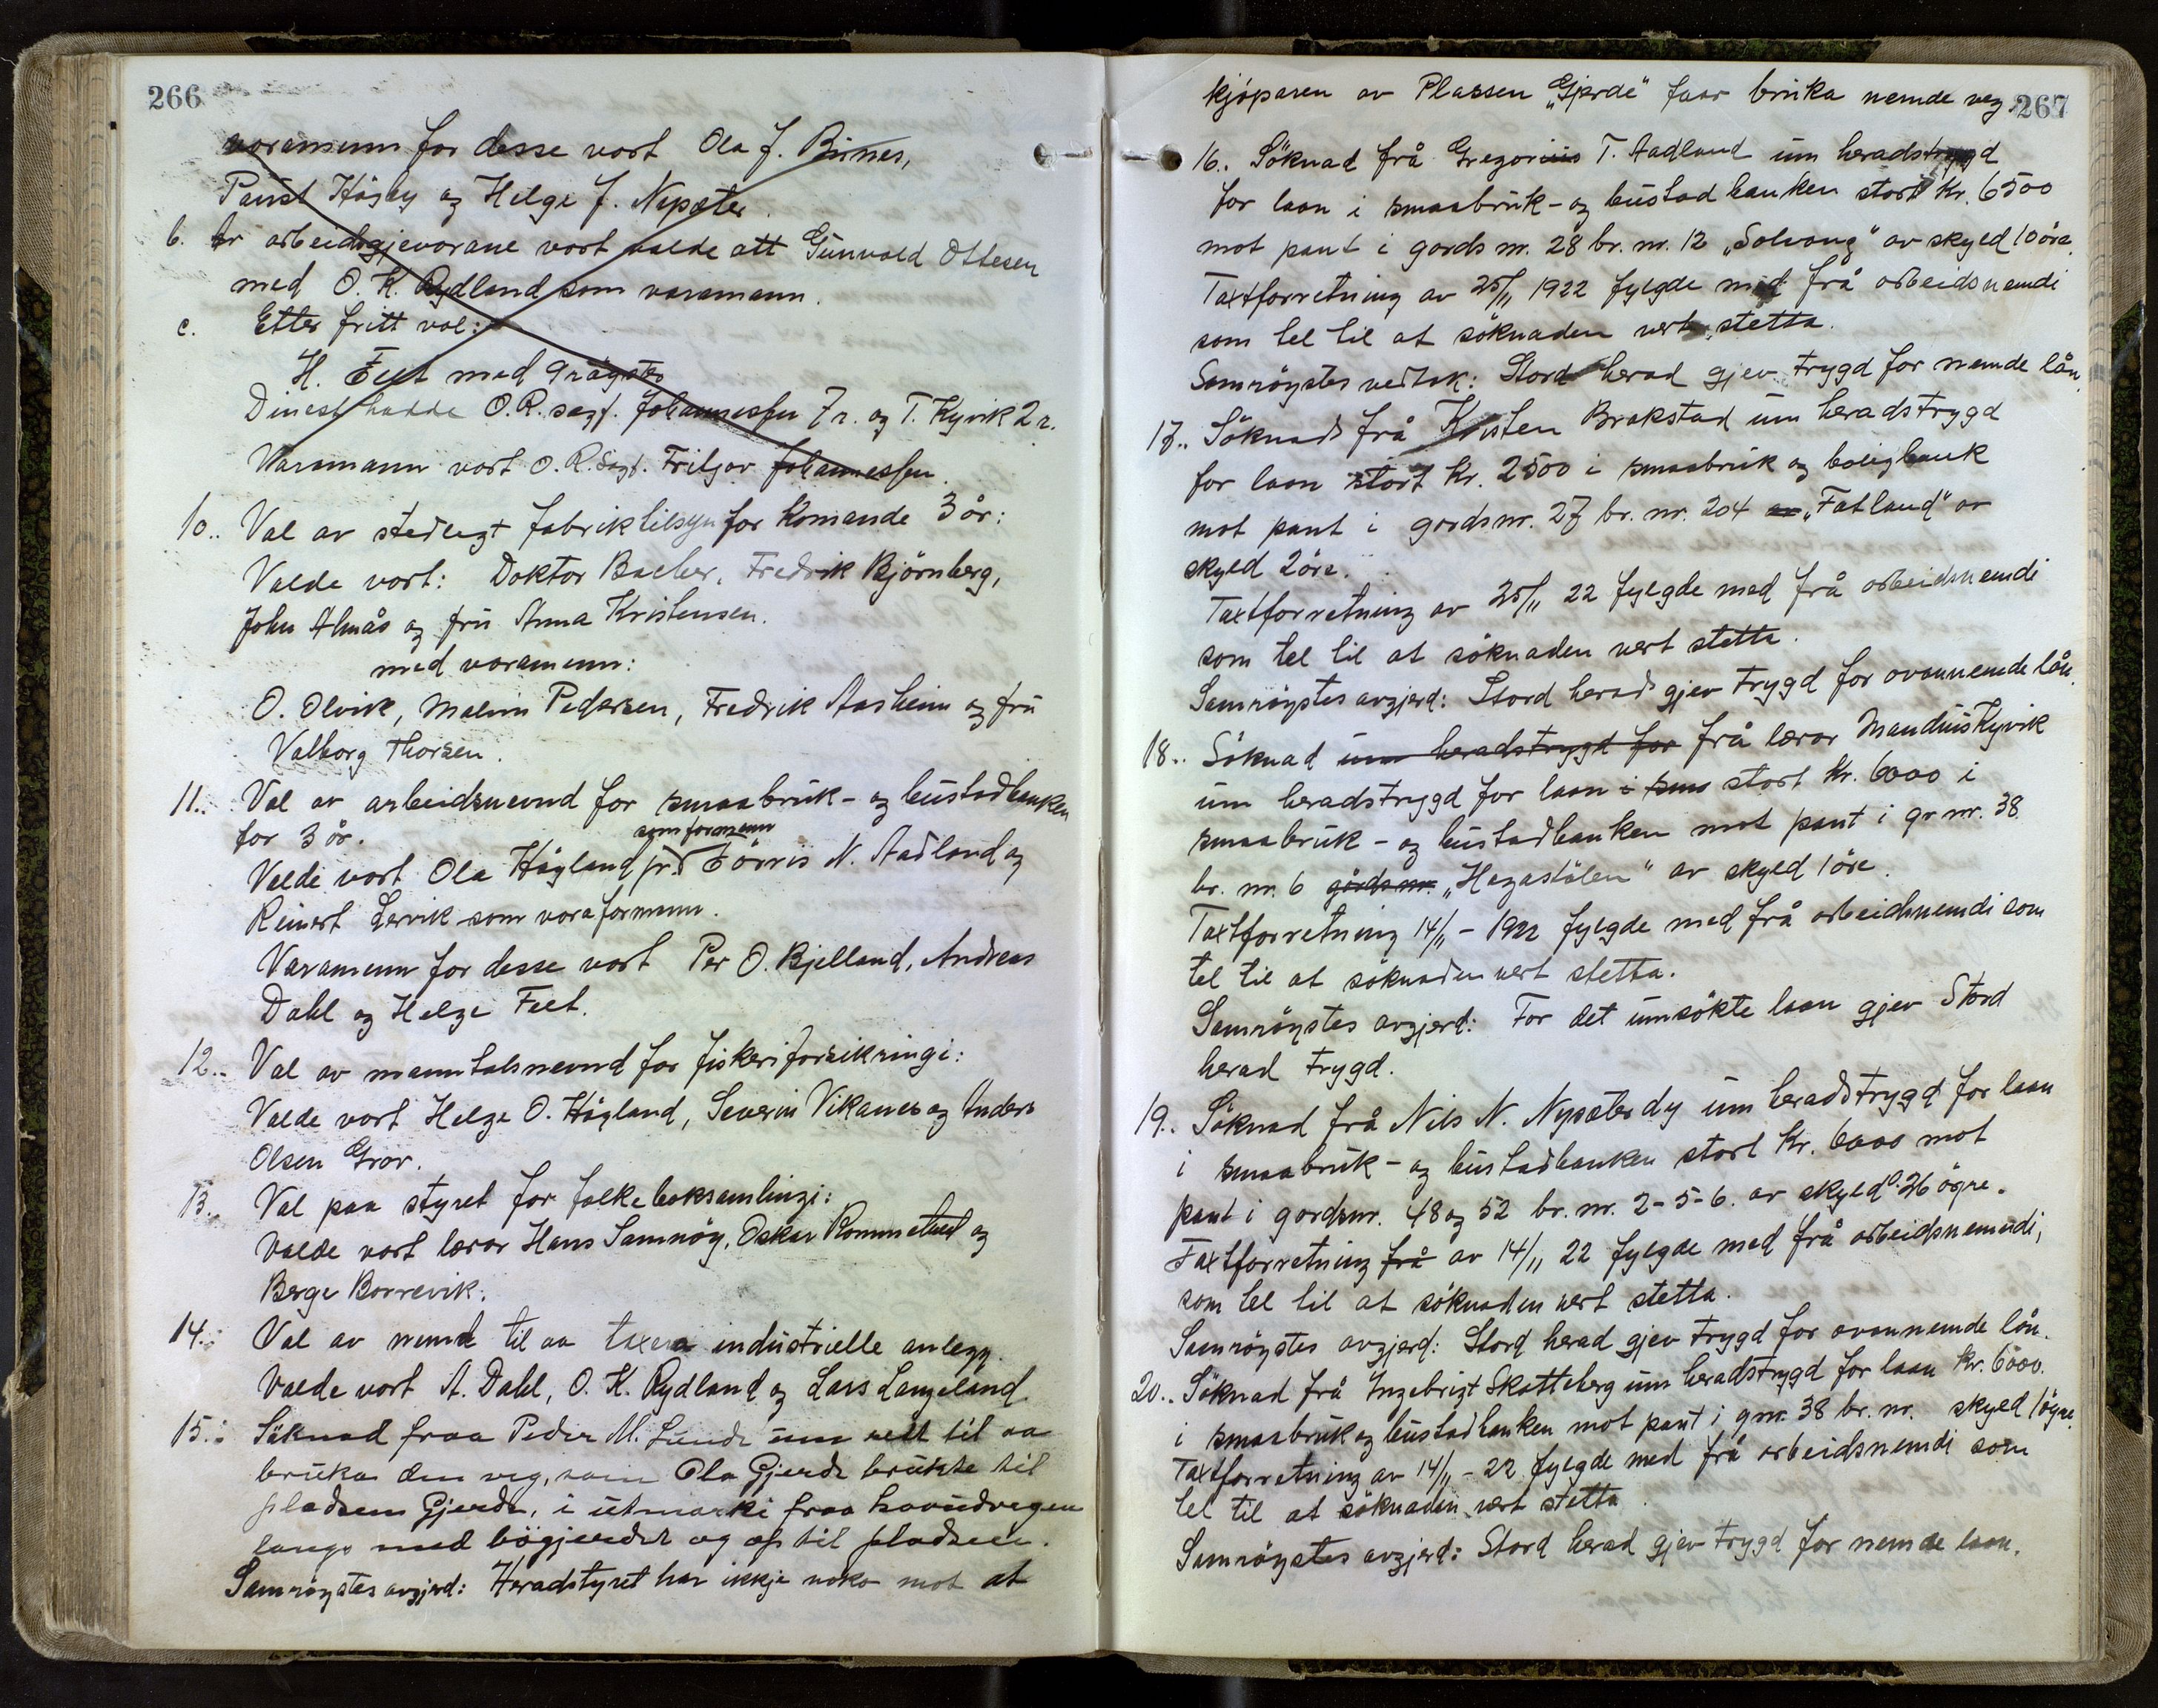 266
varamenn for desse vart Ola J. Birnes,
Paust Høgby og Helge J. Nysæter.
b. Av arbeidsgjevarane vart valde att Gunvald Ottesen
med O. K. Rydland som varamann.
c. Etter fritt val:
H. Feet med 9 røyster
Dinest hadde O. R. sagf. Johannessen 7 r. og T. Kyvik 2 r.
Varamann vart O. R. Sagf. Fritjov Johannessen.
10.. Val av stedlegt fabriktilsyn for komande 3 år:
Valde vart: Doktor Bacher, Fredrik Bjørnberg,
John Almås og fru Anna Kristensen.
med varamenn:
O. Olvik, Malvin Pedersen, Fredrik Aasheim og fru
Valborg Thorsen.
11.. Val av arbeidsnevnd for smaabruk- og bustadbanken
for 3 år.
som formann
Valde vart Ola Høyland jr. Tørris N. Aadland og
Reinert Lervik som vara formann.
Varamenn for desse vart Per O. Bjelland, Andreas
Dahl og Helge Feet.
12.. Val av manntalsnevnd for fiskeriforsikringi:
Valde vart Helge O. Høyland, Severin Vikanes og Anders
Olsen Grov.
13.. Val paa styret for folkeboksamlingi:
Valde vart lærar Hans Samnøy, Oskar Rommetveit og
Berge Borrevik.
14.: Val av nemnd til aa taxera industrielle anlegg.
Valde vart A. Dahl, O. K. Rydland og Lars Langeland
15.: Søknad fraa Peder M. Lunde um rett til aa
bruka den veg, som Ola Gjerde brukte til
pladsen Gjerde, i utmarki fraa hovudvegen
langs med bøgjerdet og op til pladsen.
Samrøystes avgjerd: Heradstyret har ikkje noko mot at
267
kjøparen av Plassen "Gjerde" faar bruka nemde veg.
16.. Søknad frå Gregorius T. Aadland um heradstrygd
for laan i smaabruk- og bustadbanken stort kr. 6500
mot pant i gards nr. 28 br. nr. 12 "Solvang" av skyld 10 øre.
Taxtforretning av 25/11 1922 fylgde med frå arbeidsnemdi
som tel til at søknaden vert stetta.
Samrøystes vedtak: Stord herad gjev trygd for nemde lån.
17.. Søknad frå Kristen Brakstad um heradstrygd
for laan stort kr. 2500 i smaabruk og boligbank
mot pant i gardsnr. 27 br. nr. 204 av "Fatland" av
skyld 2 øre.
Taxtforretning av 25/11 22 fylgde med frå arbeidsnemdi
som tel til at søknaden vert stetta.
Samrøystes avgjerd: Stord herad gjev trygd for ovannemde lån.
18.. Søknad um heradstrygd for frå lærar Mandius Kyvik
um heradstrygd for laan i sma stort kr. 6000 i
smaabruk- og bustadbanken mot pant i gr nr. 38
br. nr. 6 gårdsnr. "Hagastølen" av skyld 1 øre.
Taxtforretning 14/11 - 1922 fylgde med frå arbeidsnemdi som
tel til at søknaden vert stetta.
Samrøystes avgjerd: For det umsøkte laan gjev Stord
herad trygd.
19.. Søknad frå Nils N. Nysæter dy um heradstrygd for laan
i smaabruk- og bustadbanken stort kr. 6000 mot
pant i gardsnr. 48 og 52 br. nr. 2-5-6. av skyld 0.26 øyre.
Taxtforretning frå av 14/11 22 fylgde med frå arbeidsnemndi,
som tel til at søknaden vert stetta.
Samrøystes avgjerd: Stord herad gjev trygd for ovannemde lån.
20.. Søknad frå Ingebrigt Skatteberg um heradstrygd for laan kr. 6000.
i smaabruk og bustadbanken mot pant i gnr. 38 br. nr. skyld 1 øyre.
Taxtforretning av 14/11 - 22 fylgde med frå arbeidsnemdi som
tel til at søknaden vert stetta.
Samrøystes avgjerd: Stord herad gjev trygd for nemde laan.